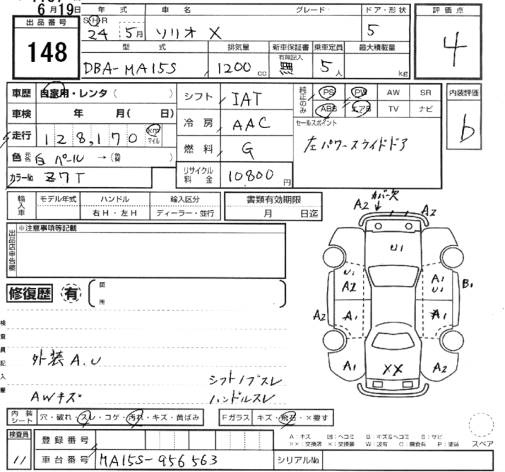 6月19日
出品番号
148
年式
車名
グレード
ドア・形状
評価点
S・H・R
24年 5月
ソリオ X
5
4
型式
排気量
新車保証書
乗車定員
最大積載量
DBA-MA15S
1200cc
有無記入
無
5人
kg
車歴 自家用・レンタ( )
シフト IAT
純正のみ
PS PW AW SR
ABS エアB TV ナビ
内装評価
b
車検 年 月( 日)
冷房 AAC
セールスポイント
左パワースライドドア
走行 128,170 km マイル
燃料 G
色 白パール→(替
カラーNo Z7T
リサイクル料金 10800円
輸入車
モデル年式
ハンドル
輸入区分
右H・左H
ディーラー・並行
書類有効期限
月 日迄
※注意事項等記載
修復歴 有
箇所
カバー欠
A2 A2
U1
U1 A1
A2 A1 U1 B1
A2 A1 A1
A1 XX A2
検査員記入欄
外装A.U
AWキズ
シフトノブスレ
ハンドルスレ
内装シート
穴・破れ・スレ・コゲ・汚れ・キズ・黄ばみ
Fガラス
キズ・飛石・×要す
スペア
検査員
11
登録番号
車台番号
MA15S-956563
シリアルNo